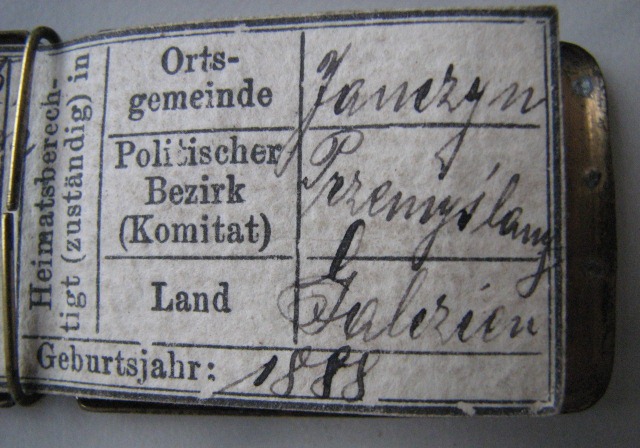 Heimatsberech-
tigt (zuständig) in
Orts-
gemeinde
Janczyn
Politischer
Bezirk
(Komitat)
Przemyślany
Land
Galizien
Geburtsjahr: 1888